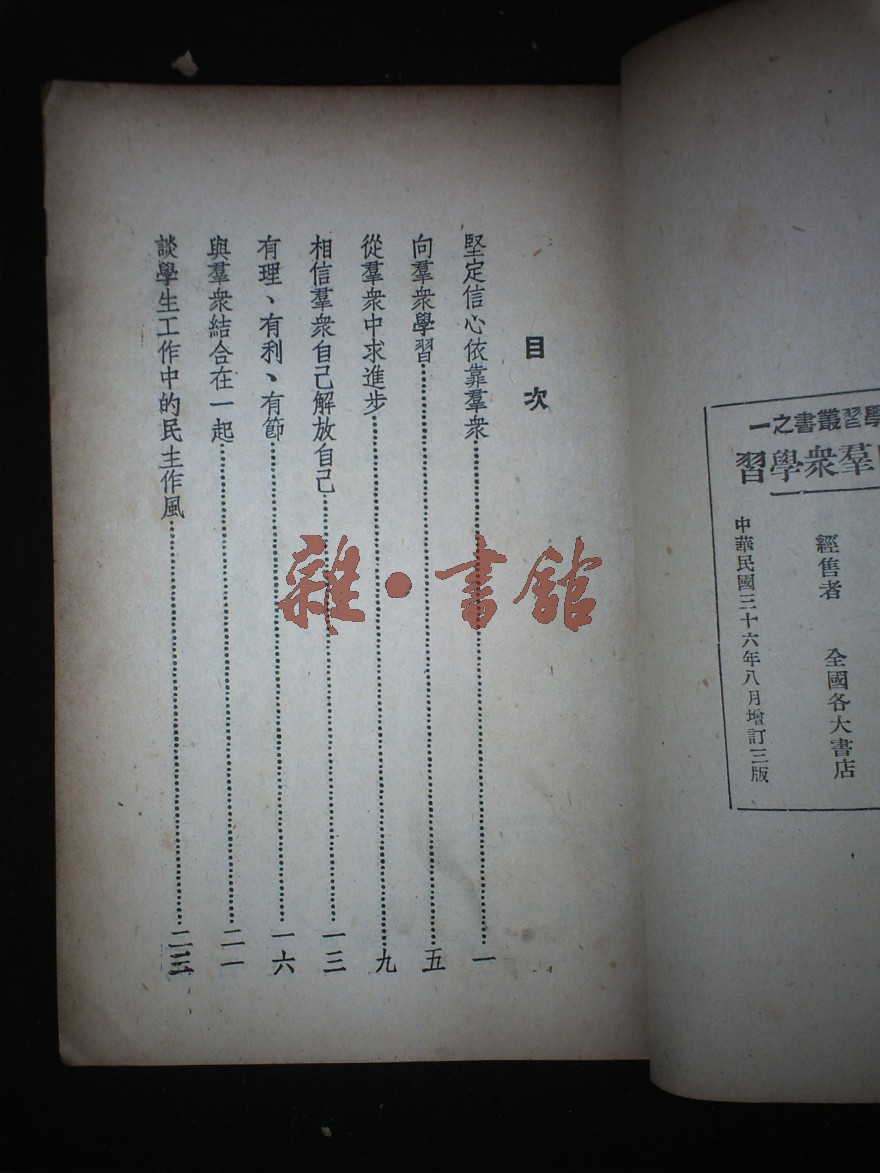 學習叢書之一
羣衆學習
經售者　全國各大書店
中華民國三十六年八月增訂三版
目次
堅定信心依靠羣衆……一
向羣衆學習……五
從羣衆中求進步……九
相信羣衆自己解放自己……一三
有理、有利、有節……一六
與羣衆結合在一起……二一
談學生工作中的民主作風……二三
雜·書舘